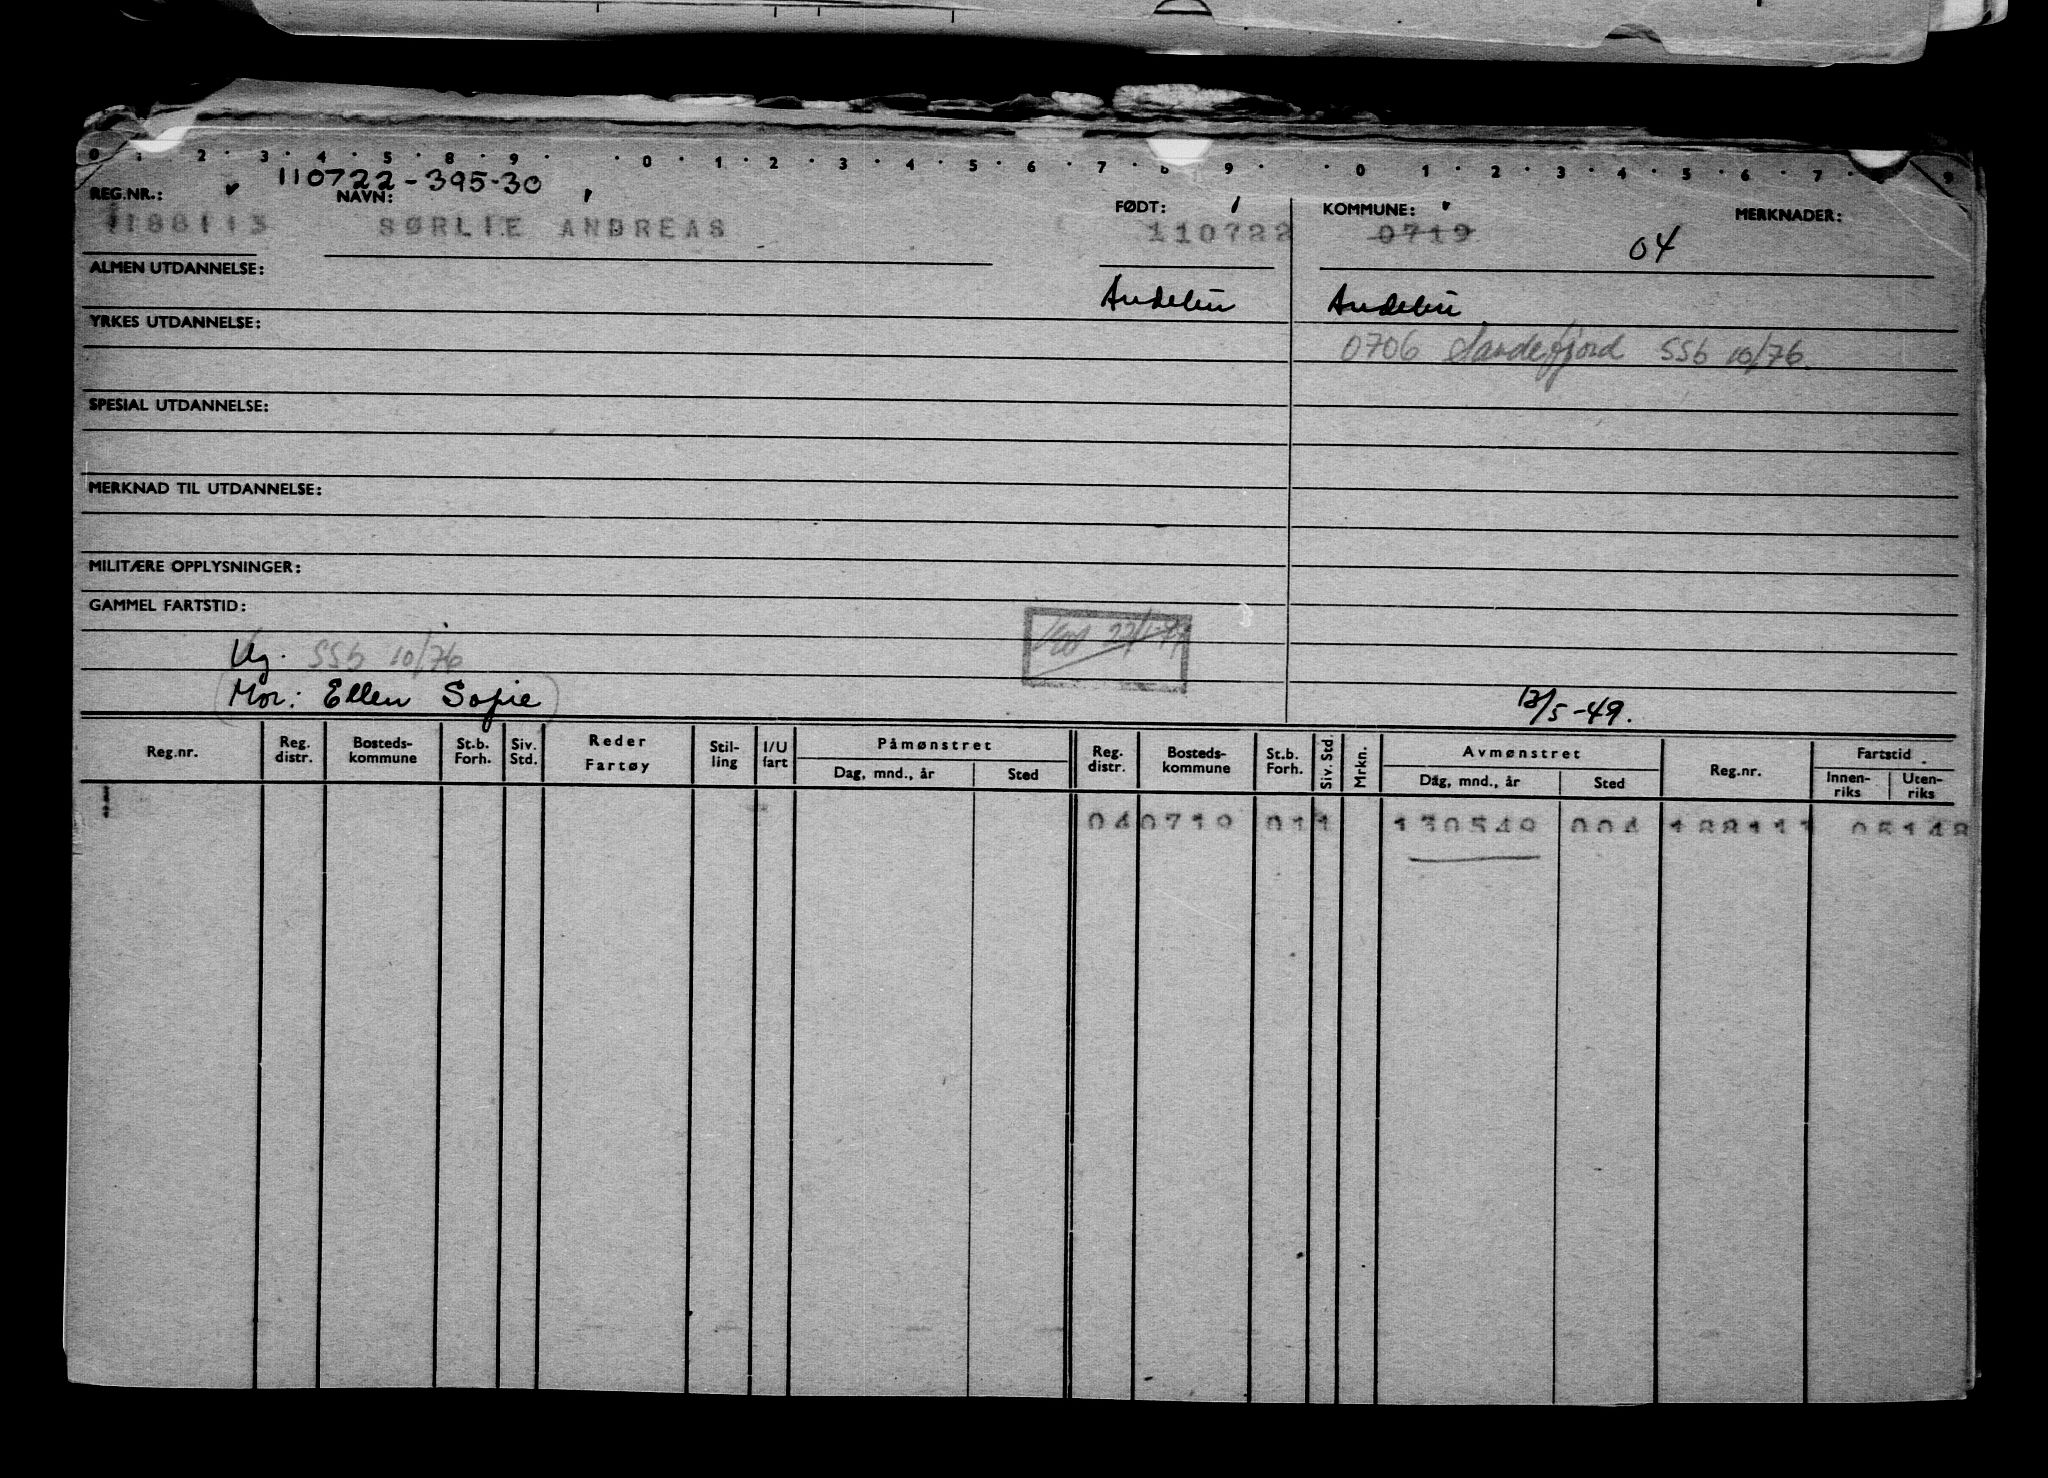 0 1 2 3 4 5 8 9 0 1 2 3 4 5 6 7 8 9 0 1 2 3 4 5 6 7 9
110722-395-30
REG.NR.: NAVN: FØDT: KOMMUNE: MERKNADER:
1188113 SØRLIE ANDREAS 110722 0719 04
ALMEN UTDANNELSE:
Andebu Andebu
YRKES UTDANNELSE:
0706 Sandefjord SSb 10/76.
SPESIAL UTDANNELSE:
MERKNAD TIL UTDANNELSE:
MILITÆRE OPPLYSNINGER:
GAMMEL FARTSTID:
Ug. SSb 10/76
Mor: Ellen Sofie 13/5-49.
Reg.nr. Reg. distr. Bosteds-kommune St.b. Forh. Siv. Std. Reder Fartøy Stil-ling I/U fart Påmønstret Dag, mnd., år Sted Reg. distr. Bosteds-kommune St.b. Forh. Siv. Std. Mrkn. Avmønstret Dag, mnd., år Sted Reg.nr. Fartstid Innen-riks Uten-riks
04 0719 01 1 130549 004 188111 05148